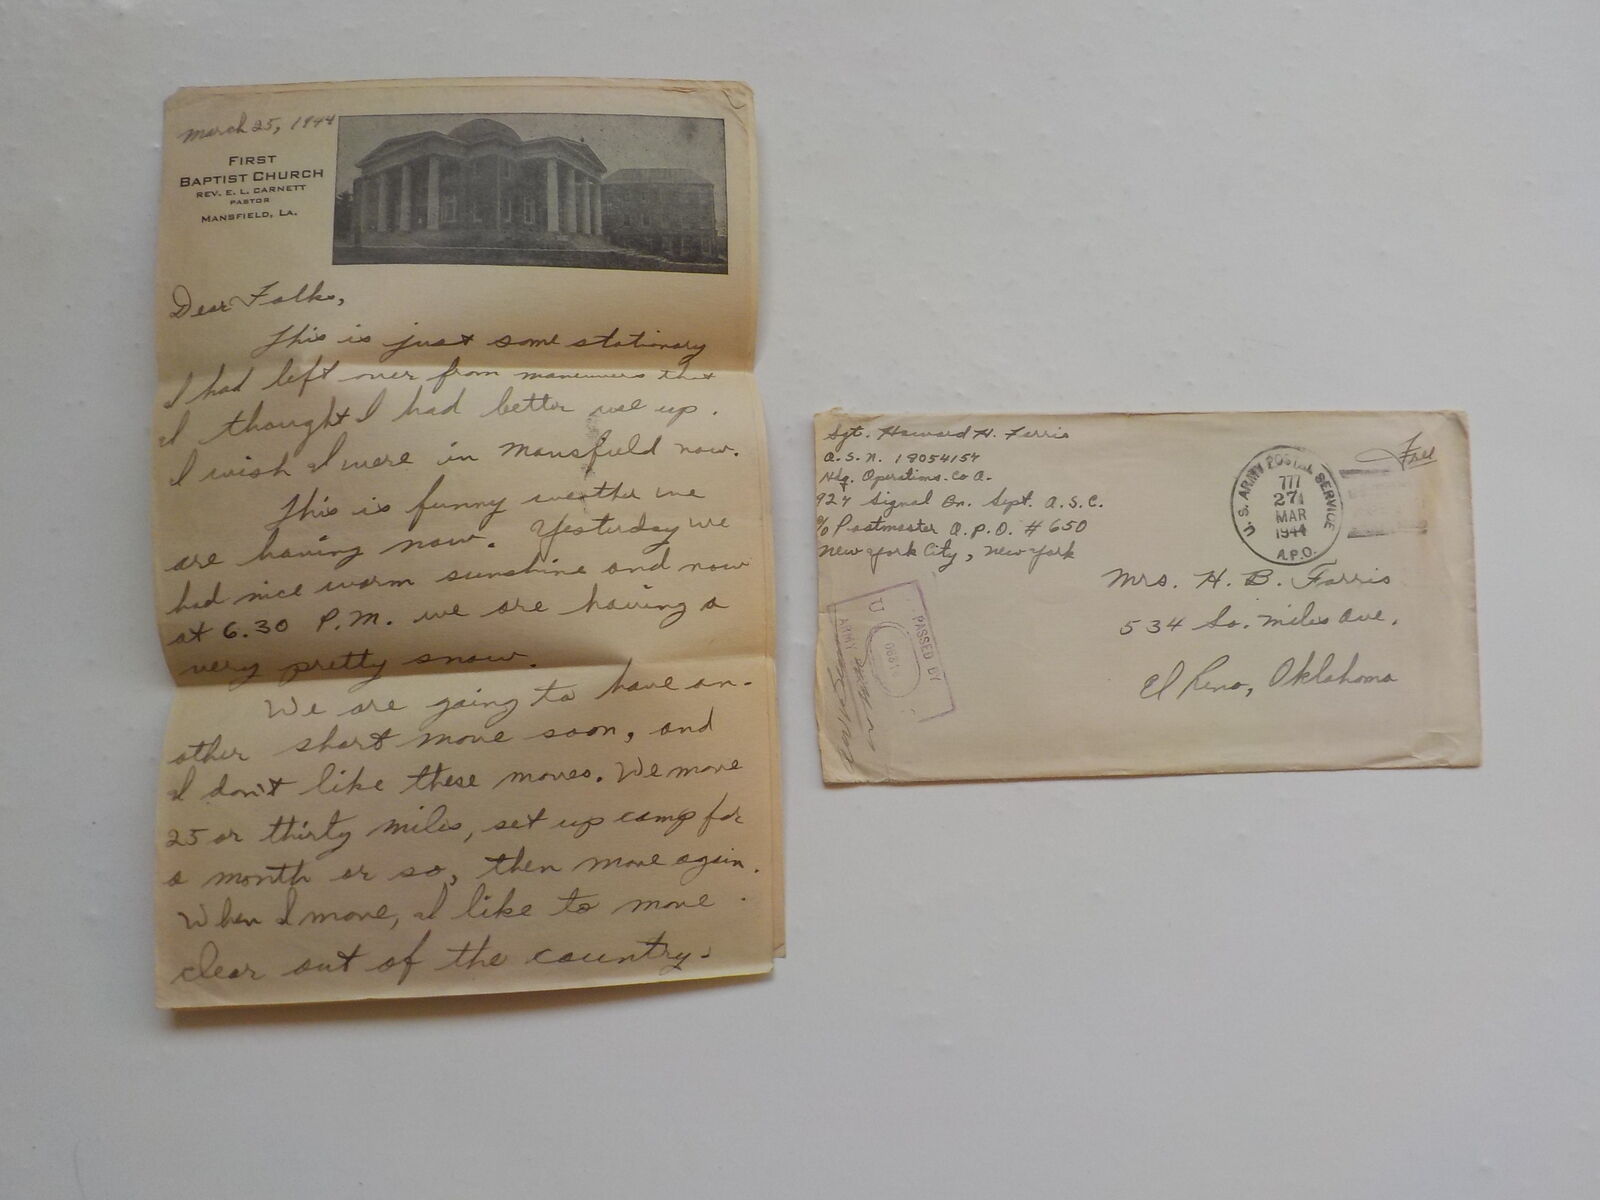 March 25, 1944
FIRST
BAPTIST CHURCH
REV. E. L. CARNETT
PASTOR
MANSFIELD, LA.
Dear Folks,
This is just some stationary
I had left over from maneuvers that
I thought I had better use up.
I wish I were in Mansfield now.
This is funny weather we
are having now. Yesterday we
had nice warm sunshine and now
at 6.30 P.M. we are having a
very pretty snow.
We are going to have an-
other short move soon, and
I don't like these moves. We move
25 or thirty miles, set up camp for
a month or so, then move again.
When I move, I like to move
clear out of the country.
Sgt. Howard H. Farris
A.S.N. 18054154
Hdq. Operations. Co A.
927 Signal Bn. Sept. A.S.C.
% Postmaster A.P.O. # 650
New York City, New York
Free
U.S. ARMY POSTAL SERVICE
777
27
MAR
1944
A.P.O.
Mrs. H. B. Farris
534 So. Miles Ave.
El Reno, Oklahoma
PASSED BY
U
ARMY